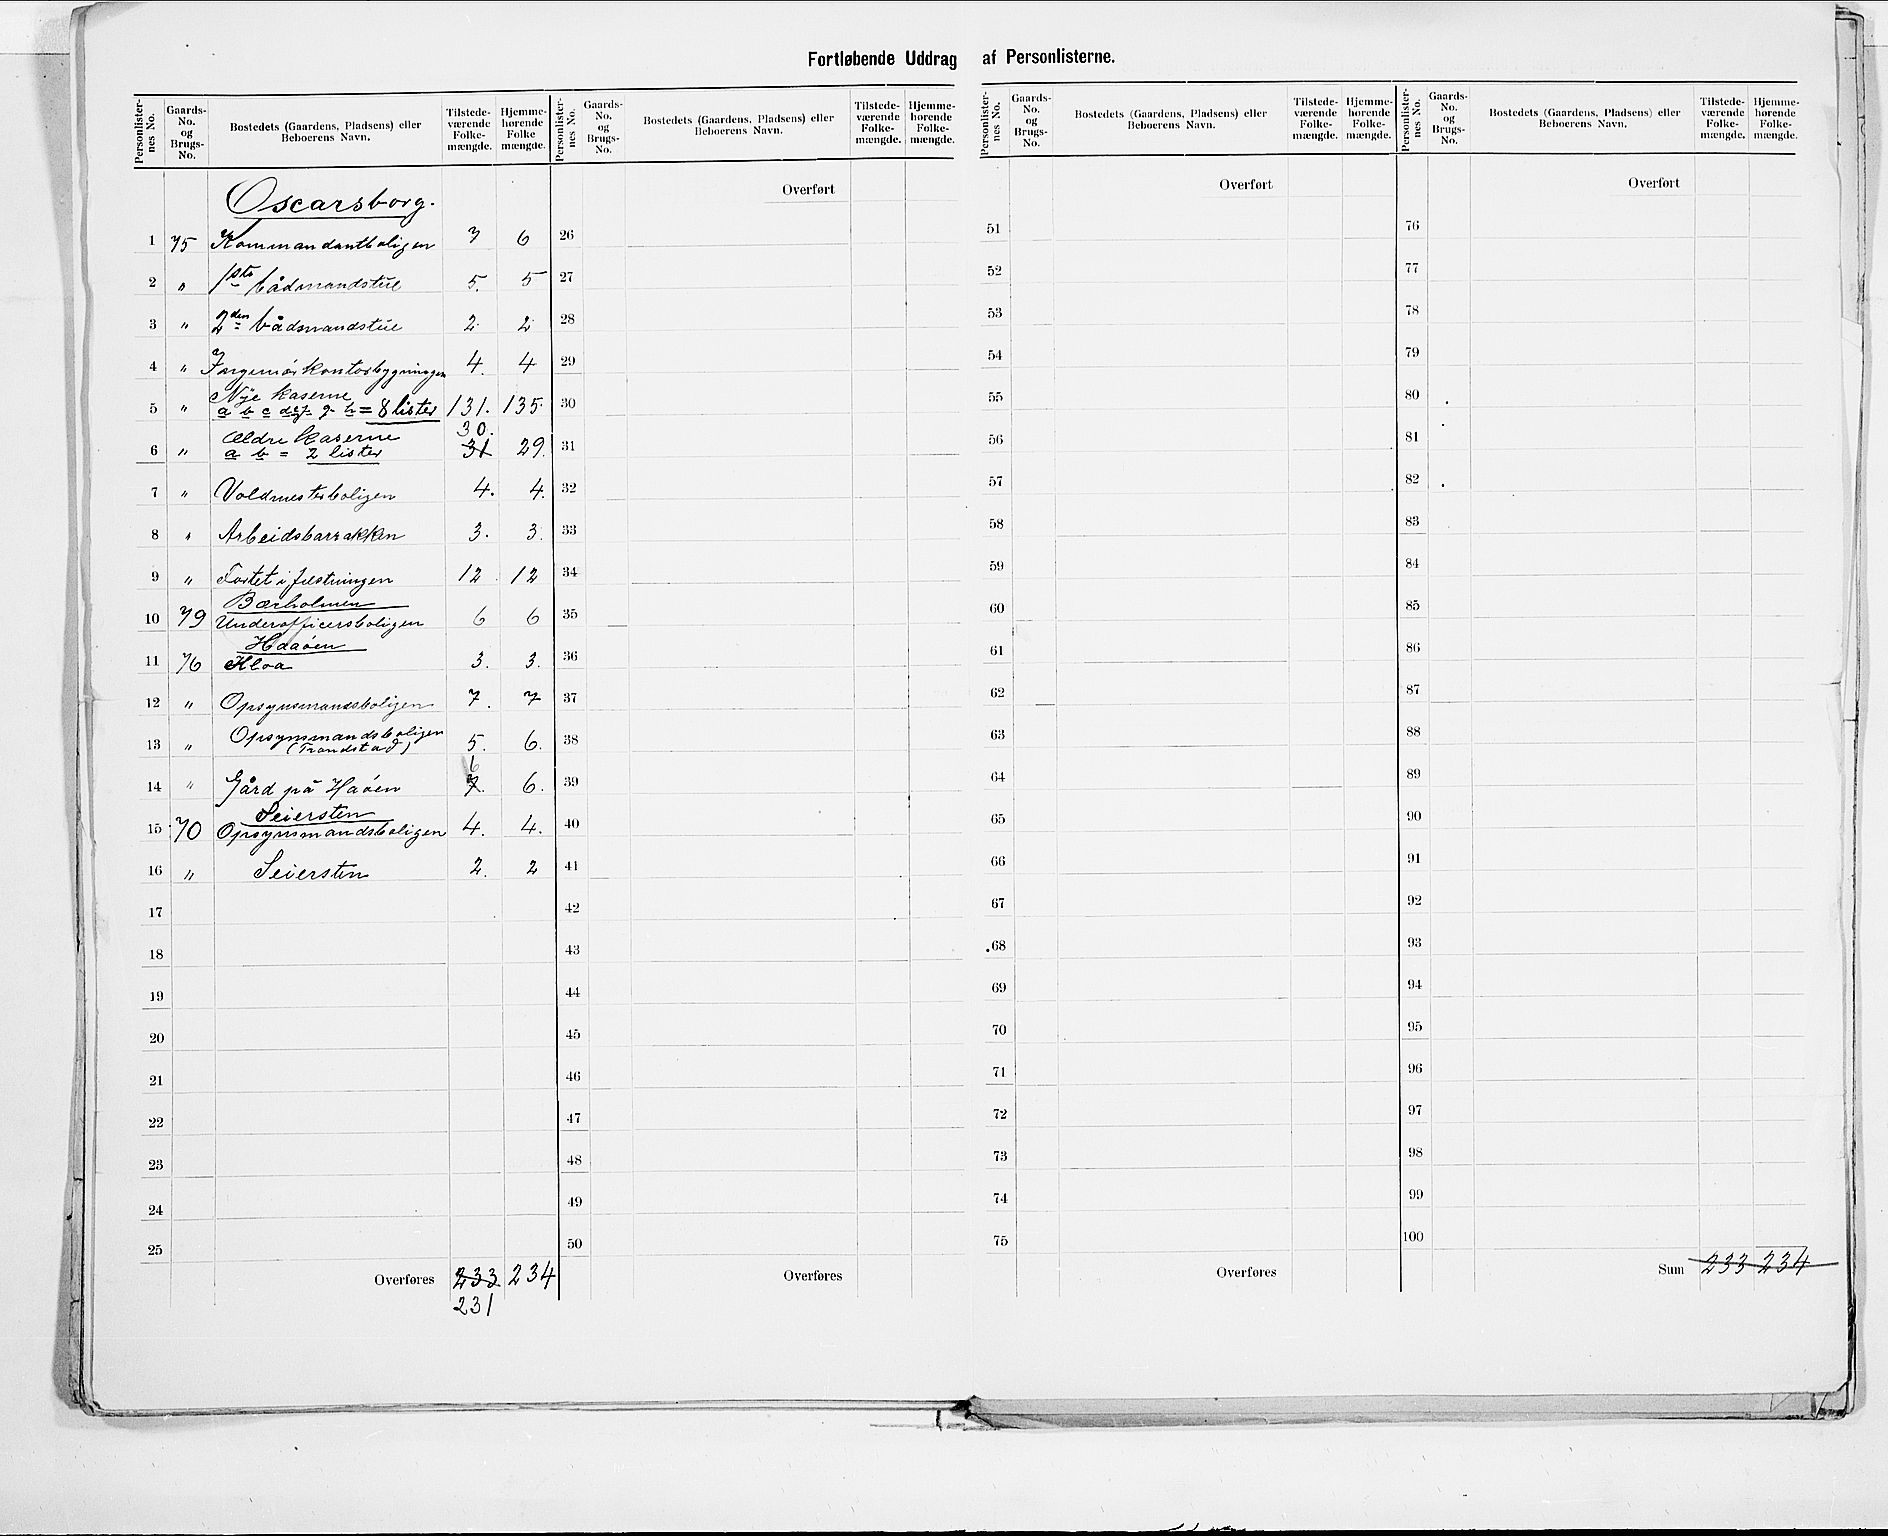 Fortløbende Uddrag af Personlisterne.
Personlister-nes No. | Gaards-No. og Brugs-No. | Bostedets (Gaardens, Pladsens) eller Beboerens Navn. | Tilstede-værende Folke-mængde. | Hjemme-hørende Folke mængde.
Personlister-nes No. | Gaards-No. og Brugs-No. | Bostedets (Gaardens, Pladsens) eller Beboerens Navn. | Tilstede-værende Folke-mængde. | Hjemme-hørende Folke-mængde.
Personlister-nes No. | Gaards-No. og Brugs-No. | Bostedets (Gaardens, Pladsens) eller Beboerens Navn. | Tilstede-værende Folke-mængde. | Hjemme-hørende Folke-mængde.
Personlister-nes No. | Gaards-No. og Brugs-No. | Bostedets (Gaardens, Pladsens) eller Beboerens Navn. | Tilstede-værende Folke-mængde. | Hjemme-hørende Folke-mængde.
Oscarsborg.
1 75 Kommandantboligen 7 6
2 " 1ste bådmandstue 5. 5
3 " 2den bådsmandstue 2 2
4 " Ingeniörkontorbygningen 4. 4
Nye kaserne
5 " a b c d e f g h = 8 lister 131. 135.
Ældre kaserne 30.
6 " a b = 2 lister 31 29.
7 " Voldmesterboligen 4. 4.
8 " Arbeidsbarrakken 3. 3.
9 " Fortet i fæstningen 12. 12
Bærholmen
10 79 Underofficersboligen 6 6
Haaöen
11 76 Kloa 3. 3.
12 " Opsynsmandsboligen 7. 7
13 " Opsynsmandsboligen 5. 6.
(Trondstad)
6
14 " Gård på Haöen 7. 6.
Seiersten
15 70 Opsynsmandsboligen 4. 4.
16 " Seiersten 2. 2
17
18
19
20
21
22
23
24
25
Overføres 233 234
231
Overført
26
27
28
29
30
31
32
33
34
35
36
37
38
39
40
41
42
43
44
45
46
47
48
49
50
Overføres
Overført
51
52
53
54
55
56
57
58
59
60
61
62
63
64
65
66
67
68
69
70
71
72
73
74
75
Overføres
Overført
76
77
78
79
80
81
82
83
84
85
86
87
88
89
90
91
92
93
94
95
96
97
98
99
100
Sum 233 234